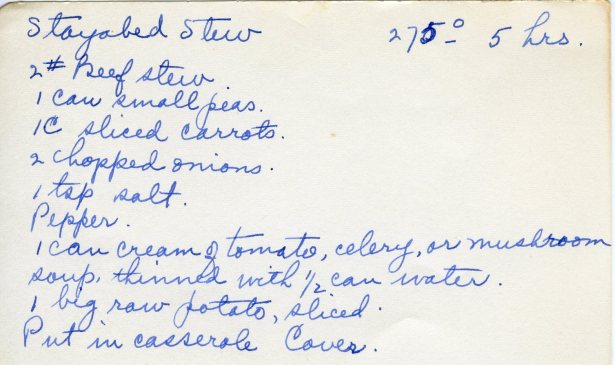 Stayabed Stew 275° 5 hrs.
2# Beef stew
1 can small peas.
1C sliced carrots.
2 chopped onions.
1 tsp salt.
Pepper.
1 can cream of tomato, celery, or mushroom
soup, thinned with 1/2 can water.
1 big raw potato, sliced.
Put in casserole Cover.